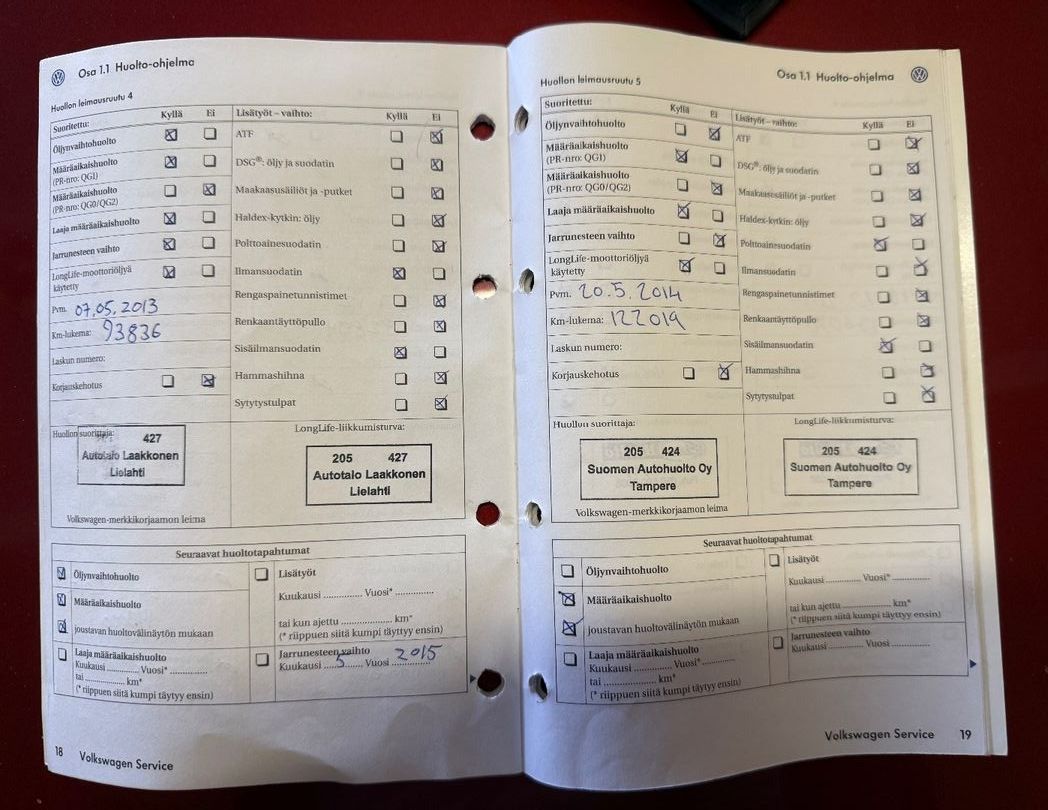 Osa 1.1 Huolto-ohjelma
Huollon leimausruutu 4
Suoritettu: Kyllä Ei
Öljynvaihtohuolto
Määräaikaishuolto
(PR-nro: QG1)
Määräaikaishuolto
(PR-nro: QG0/QG2)
Laaja määräaikaishuolto
Jarrunesteen vaihto
LongLife-moottoriöljyä
käytetty
Pvm. 07.05.2013
Km-lukema: 93836
Laskun numero:
Korjauskehotus
Lisätyöt – vaihto: Kyllä Ei
ATF
DSG®: öljy ja suodatin
Maakaasusäiliöt ja -putket
Haldex-kytkin: öljy
Polttoainesuodatin
Ilmansuodatin
Rengaspainetunnistimet
Renkaantäyttöpullo
Sisäilmansuodatin
Hammashihna
Sytytystulpat
Huollon suorittaja:
427
Autotalo Laakkonen
Lielahti
LongLife-liikkumisturva:
205 427
Autotalo Laakkonen
Lielahti
Volkswagen-merkkikorjaamon leima
Seuraavat huoltotapahtumat
Öljynvaihtohuolto
Määräaikaishuolto
joustavan huoltovälinäytön mukaan
Laaja määräaikaishuolto
Kuukausi ........... Vuosi* ...........
tai .................... km*
(* riippuen siitä kumpi täytyy ensin)
Lisätyöt
Kuukausi ............. Vuosi* .............
tai kun ajettu ................ km*
(* riippuen siitä kumpi täyttyy ensin)
Jarrunesteen vaihto
Kuukausi ....5.... Vuosi ..2015..
18 Volkswagen Service
Osa 1.1 Huolto-ohjelma
Huollon leimausruutu 5
Suoritettu: Kyllä Ei
Öljynvaihtohuolto
Määräaikaishuolto
(PR-nro: QG1)
Määräaikaishuolto
(PR-nro: QG0/QG2)
Laaja määräaikaishuolto
Jarrunesteen vaihto
LongLife-moottoriöljyä
käytetty
Pvm. 20.5.2014
Km-lukema: 122019
Laskun numero:
Korjauskehotus
Lisätyöt – vaihto: Kyllä Ei
ATF
DSG®: öljy ja suodatin
Maakaasusäiliöt ja -putket
Haldex-kytkin: öljy
Polttoainesuodatin
Ilmansuodatin
Rengaspainetunnistimet
Renkaantäyttöpullo
Sisäilmansuodatin
Hammashihna
Sytytystulpat
Huollon suorittaja:
205 424
Suomen Autohuolto Oy
Tampere
LongLife-liikkumisturva:
205 424
Suomen Autohuolto Oy
Tampere
Volkswagen-merkkikorjaamon leima
Seuraavat huoltotapahtumat
Öljynvaihtohuolto
Määräaikaishuolto
joustavan huoltovälinäytön mukaan
Laaja määräaikaishuolto
Kuukausi ........... Vuosi* ...........
tai .................... km*
(* riippuen siitä kumpi täytyy ensin)
Lisätyöt
Kuukausi ............. Vuosi* .............
tai kun ajettu ................ km*
(* riippuen siitä kumpi täyttyy ensin)
Jarrunesteen vaihto
Kuukausi ............. Vuosi .............
Volkswagen Service 19